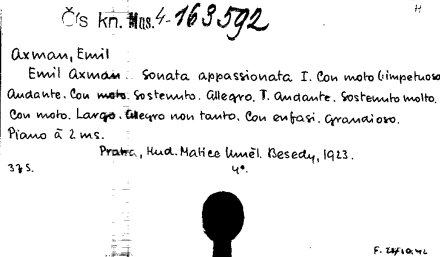 Čís kn. Mus. 4-163592
H
Axman, Emil
Emil Axman: Sonata appassionata I. Con moto (: impetuoso
Andante. Con moto. Sostenuto. Allegro. I. Andante. Sostenuto molto.
Con moto. Largo. Allegro non tanto. Con enfasi. Grandioso.
Piano à 2 ms.
Praha, Hud. Matice Uměl. Besedy, 1923.
37 S. 4°.